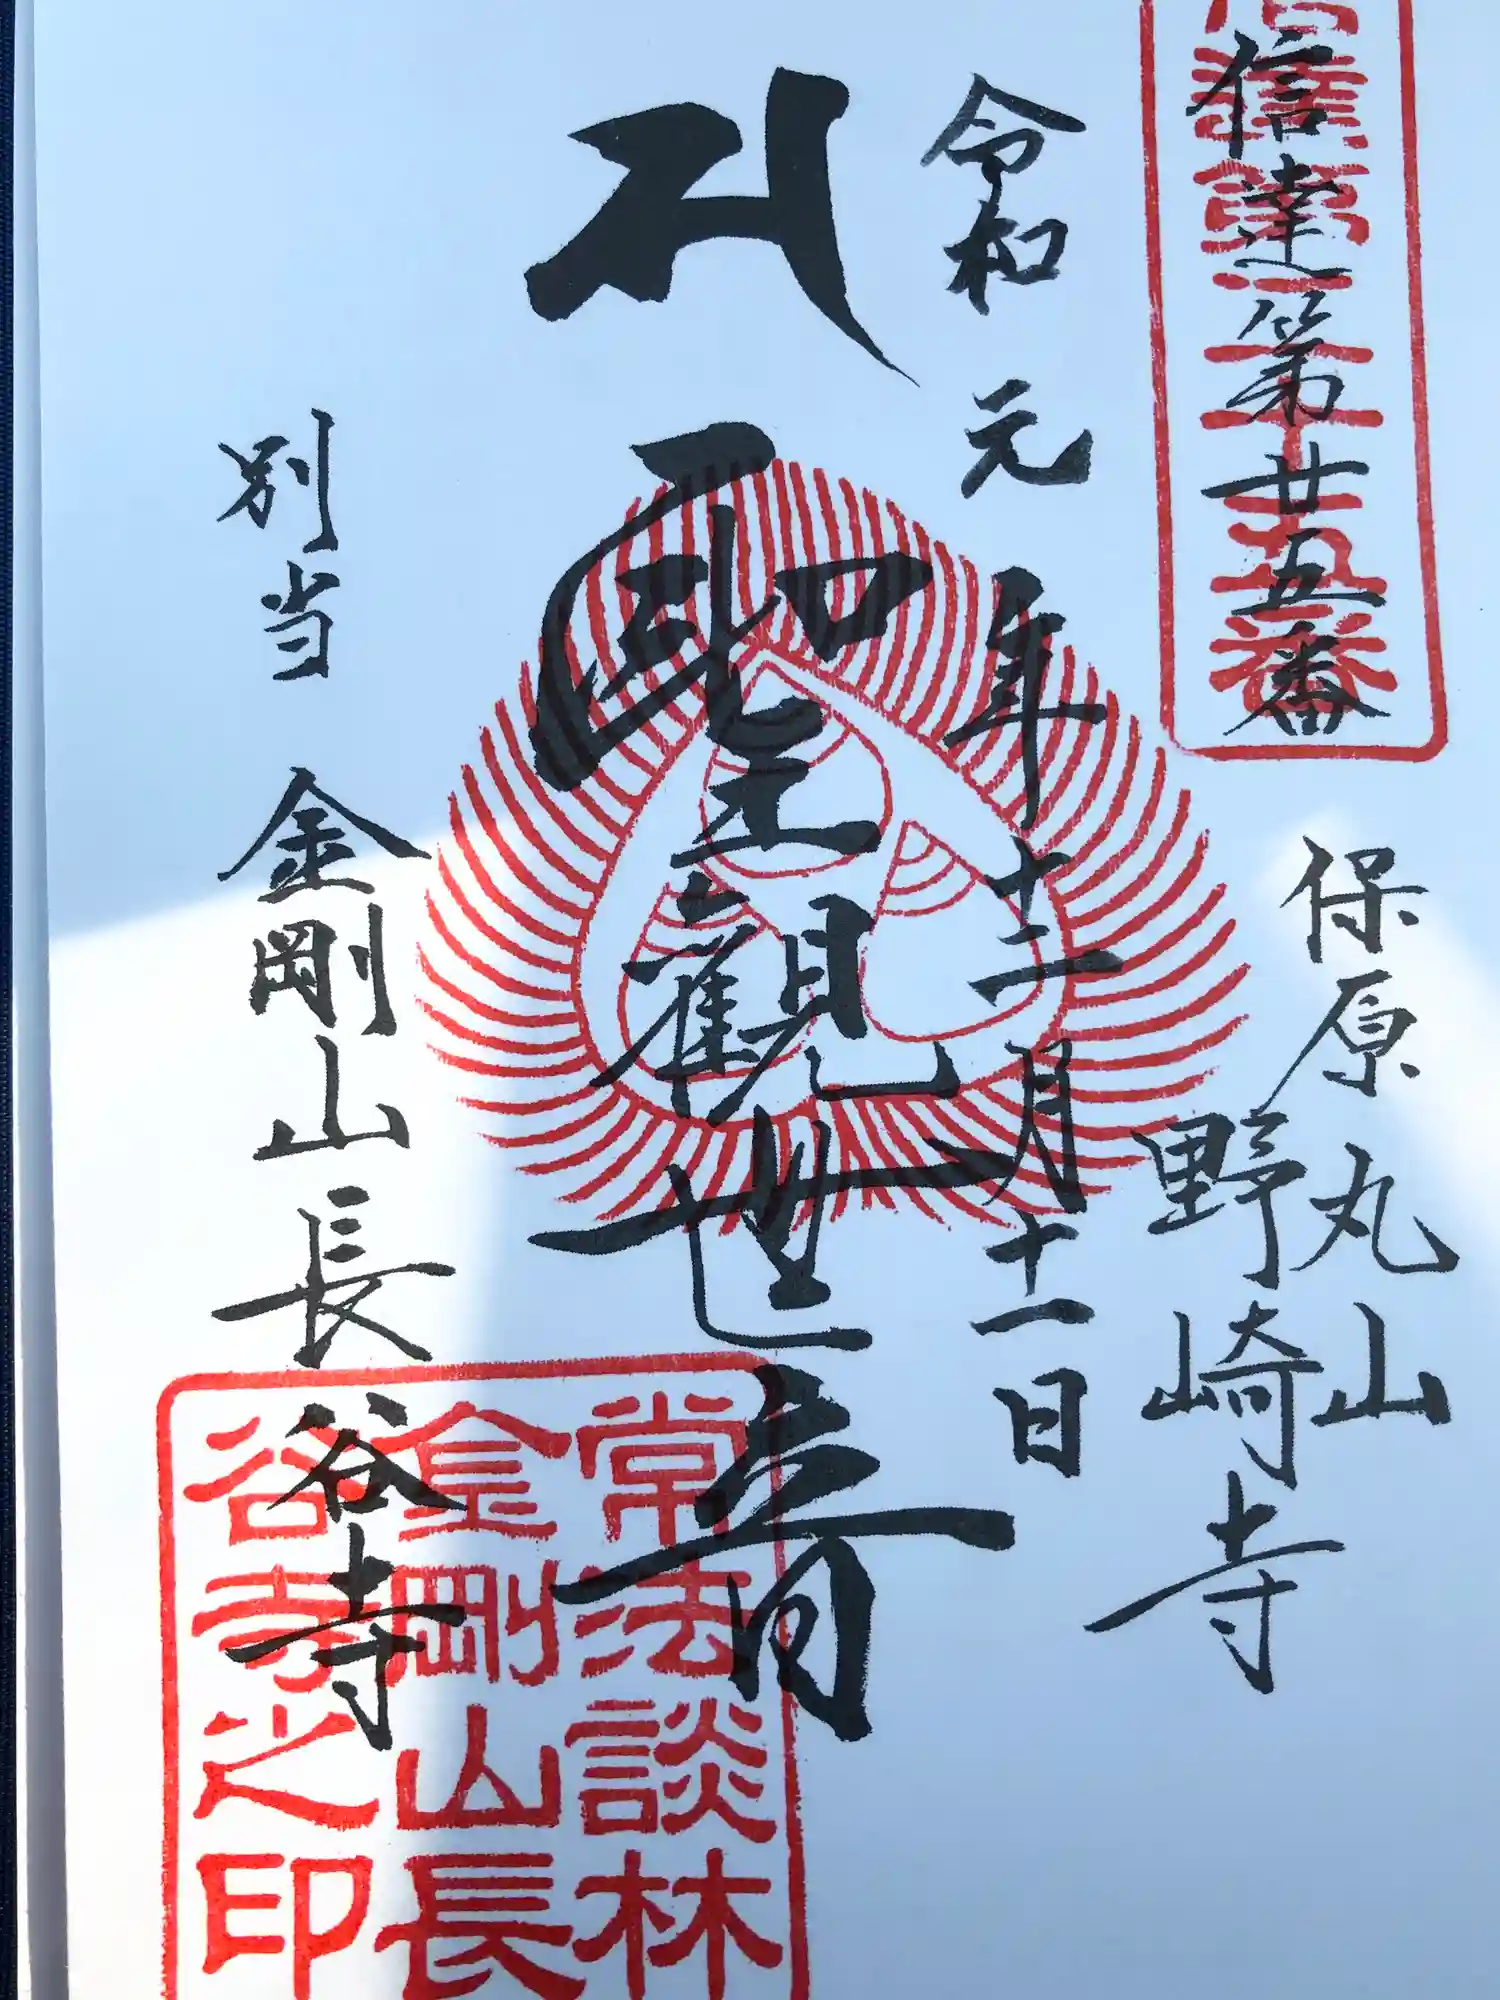 信達第廿五番
保原丸山
野崎寺
令和元年十二月十一日
聖観世音
別当 金剛山長谷寺
常法談林
金剛山長
谷寺之印